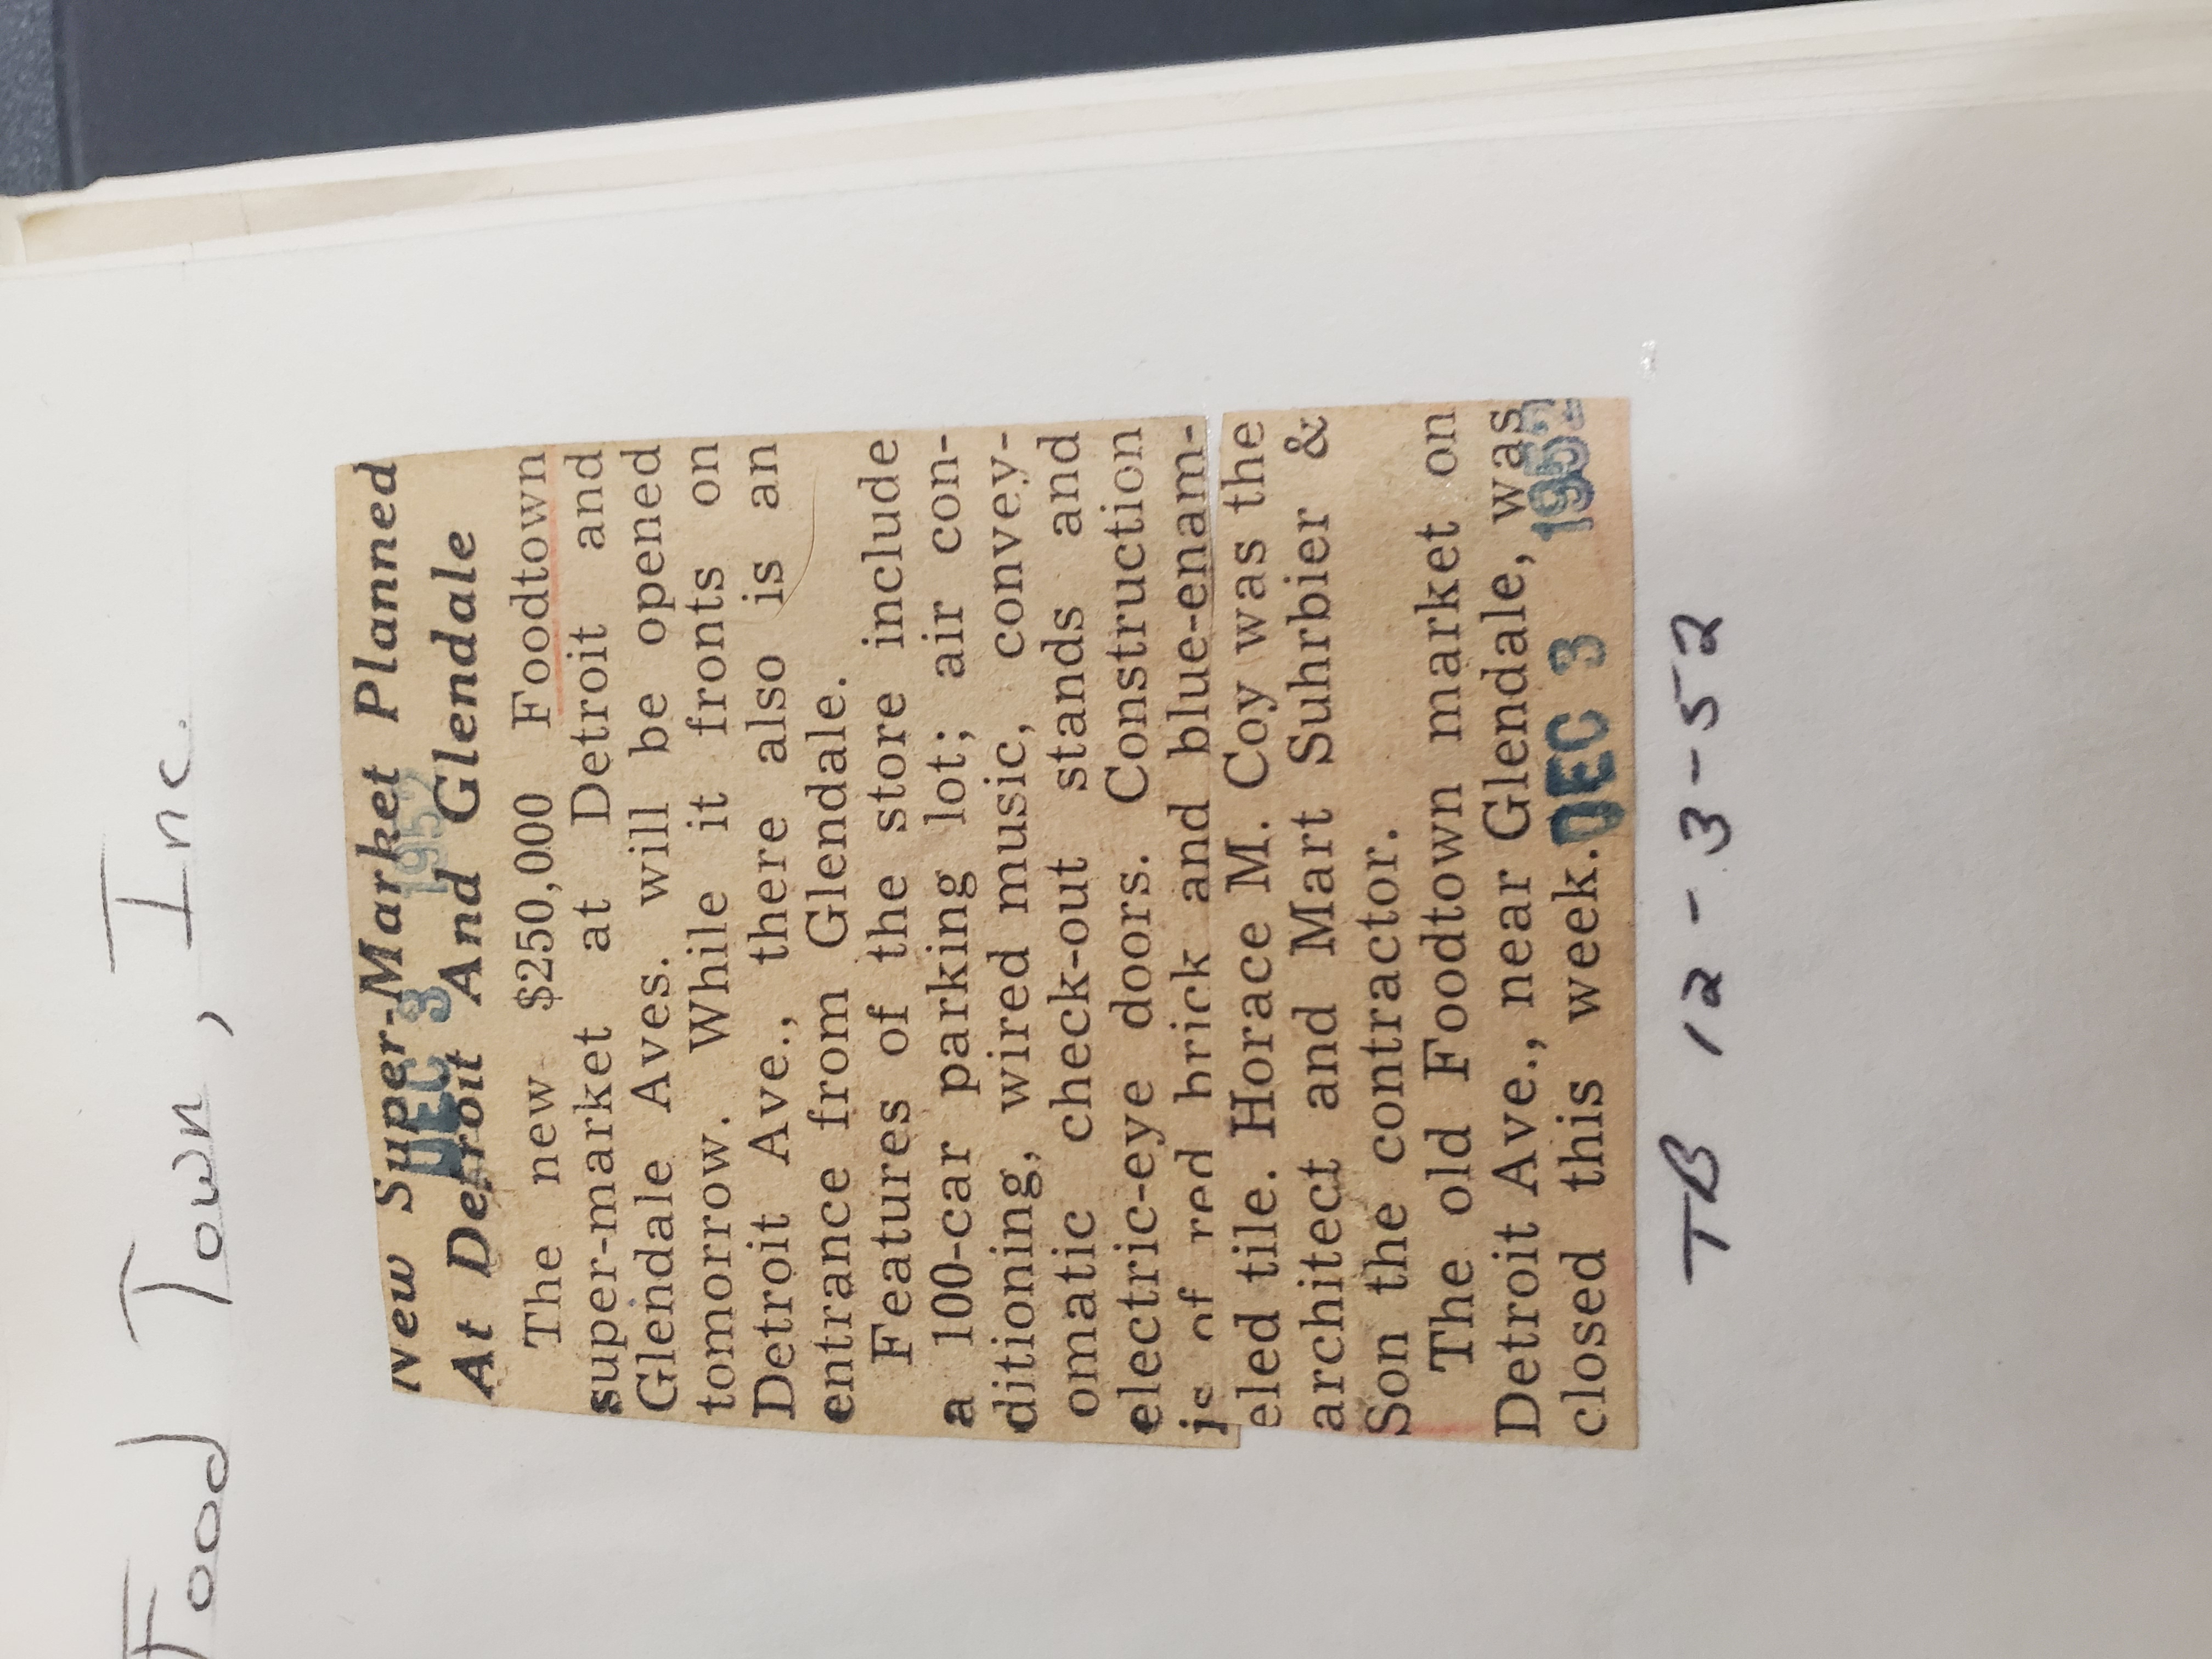 Food Town, Inc.
New Super-Market Planned
At Detroit And Glendale
DEC 3 1952
The new $250,000 Foodtown
super-market at Detroit and
Glendale Aves. will be opened
tomorrow. While it fronts on
Detroit Ave., there also is an
entrance from Glendale.
Features of the store include
a 100-car parking lot; air con-
ditioning, wired music, convey-
omatic check-out stands and
electric-eye doors. Construction
is of red brick and blue-enam-
eled tile. Horace M. Coy was the
architect and Mart Suhrbier &
Son the contractor.
The old Foodtown market on
Detroit Ave., near Glendale, was
closed this week.
DEC 3 1952
TB 12-3-52